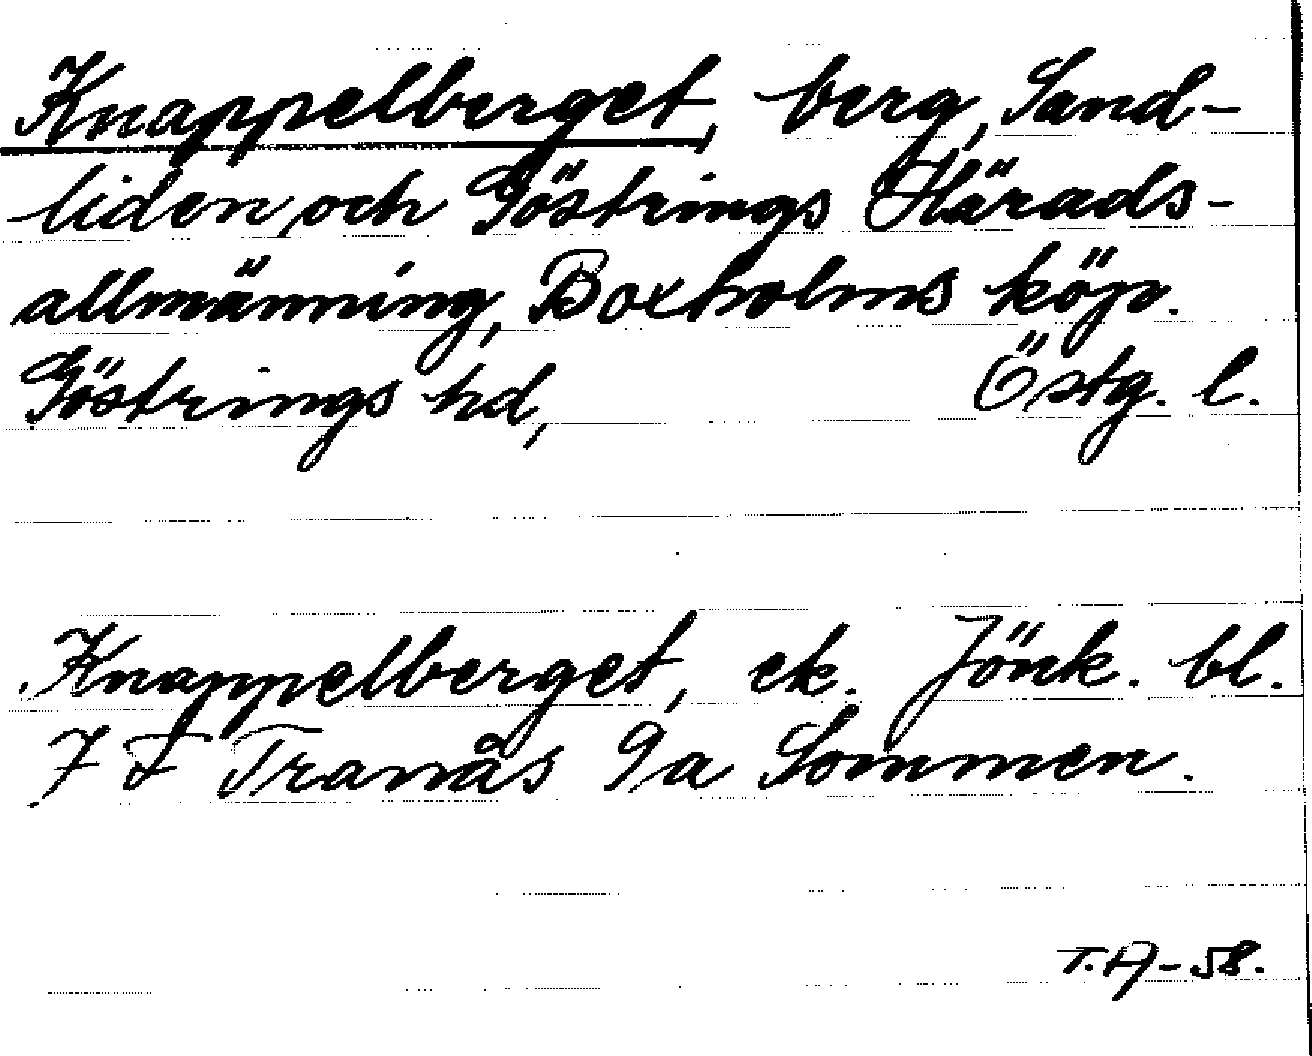 Knappelberget, berg, Sand-
liden och Göstrings Härads-
allmänning, Boxholms köp.
Göstrings hd, Östg. l.
Knappelberget, ek. Jönk. bl.
7 F Tranås 9a Sommen.
T.A-58.